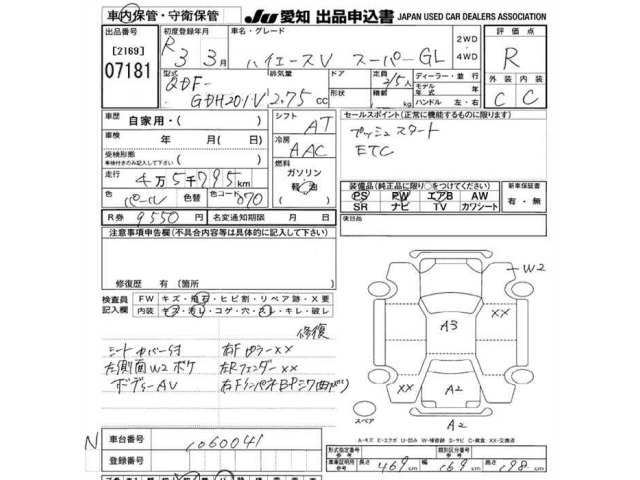 車内保管・守衛保管
JU 愛知 出品申込書 JAPAN USED CAR DEALERS ASSOCIATION
出品番号 初度登録年月 車名・グレード 評価点
[2169] R 3 3月 ハイエースV スーパーGL 2WD・4WD R
07181
型式 排気量 ドア 定員 ディーラー・並行 外装 内装
QDF-GDH201V 2.75 cc 2/5人 C C
形状 積載 kg モデル年式 年
ハンドル 左・右
車歴 自家用・( ) シフト AT セールスポイント(正常に機能するものに限ります)
車検 年 月(日) 冷房 AAC プッシュスタート
受検形態 車検付きのみ記入して下さい ETC
走行 4万5千795km 燃料 ガソリン・軽油
色 パール 色替 色コード 070
装備品(純正品に限り○をつけてください) 新車保証書
PS PW エアB AW 有・無
SR ナビ TV カワシート
R券 9550円 名変通知期限 月 日 後日品
注意事項申告欄(不具合内容等は具体的に記入して下さい)
修復歴 有 〔箇所
検査員記入欄 FW キズ・飛石・ヒビ割・リペア跡・X要
内装 キズ・汚レ・コゲ・穴・スレ・キレ・破レ
修復
シートカバー付 右Fピラーxx
左側面W2ボケ 左Rフェンダーxx
ボディーAV
W2
XX
A3
XX
A2
スペア A2
A-キズ E-エクボ U-凹み W-補修跡 S-サビ C-腐食 XX-交換済
N 車台番号 1060041
登録番号
形式指定番号 類別区分番号
車庫証明用参考 長さ 469cm 幅 169cm 高さ 198cm